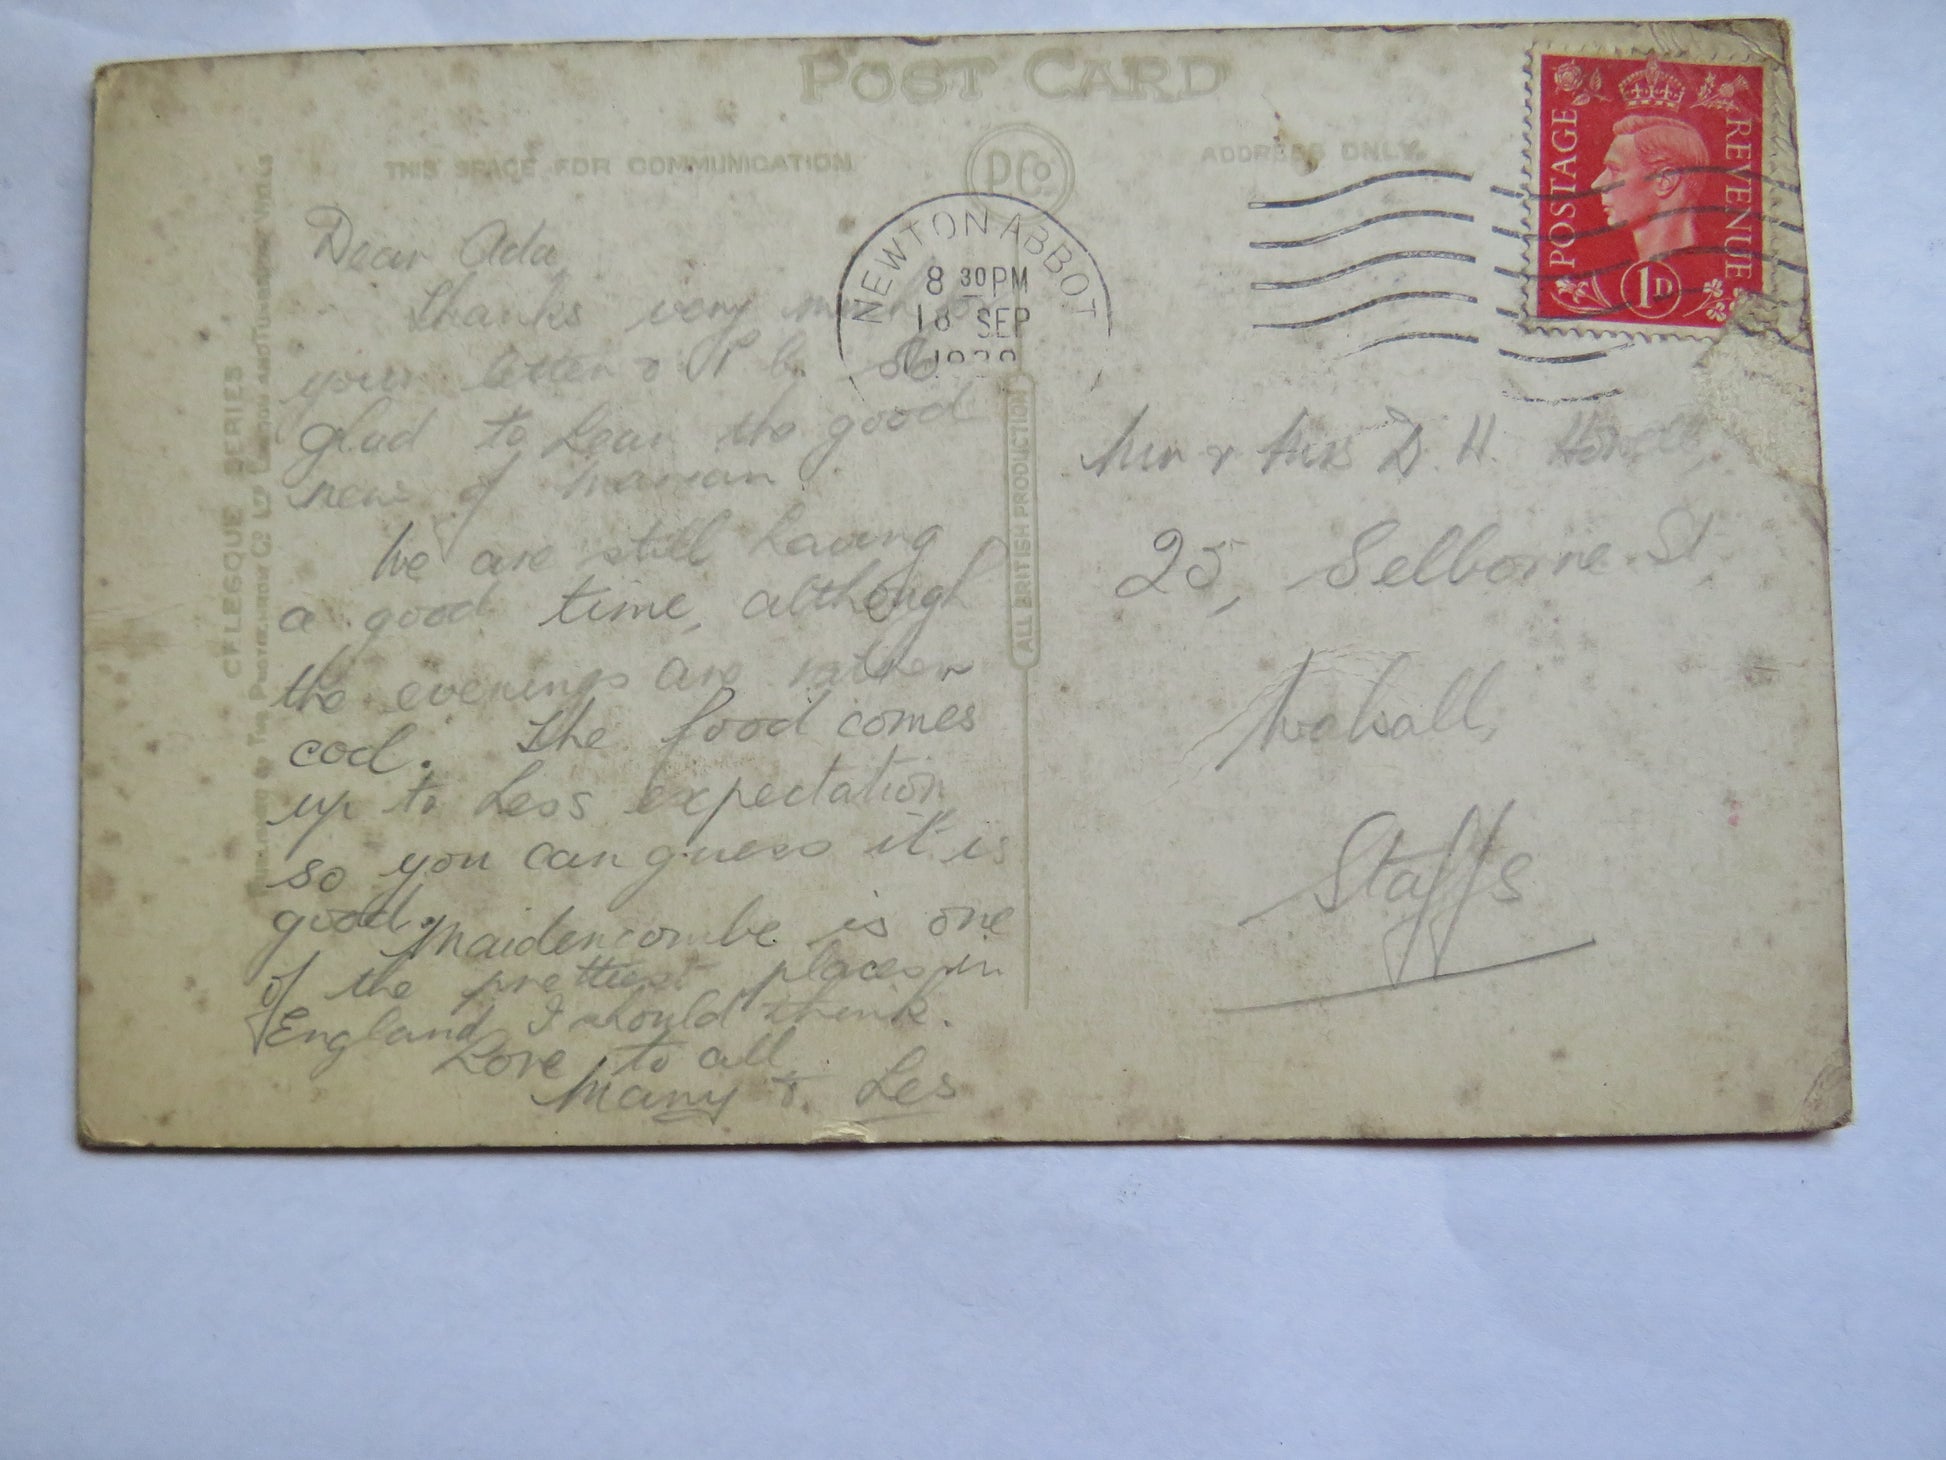 POST CARD
THIS SPACE FOR COMMUNICATION
P.Co.
ADDRESS ONLY.
POSTAGE REVENUE
1D
NEWTON ABBOT
8 30PM
18 SEP
CELESQUE SERIES
ALL BRITISH PRODUCTION
Dear Ada,
Thanks very much for
your letter & P.C. So
glad to hear the good
news of Marian.
We are still having
a good time, although
the evenings are rather
cool. The food comes
up to Les's expectation
so you can guess it is
good. Maidencombe is one
of the prettiest places in
England, I should think.
Love to all
Many & Les
Mr & Mrs D. H.
25, Selborne St,
Walsall,
Staffs